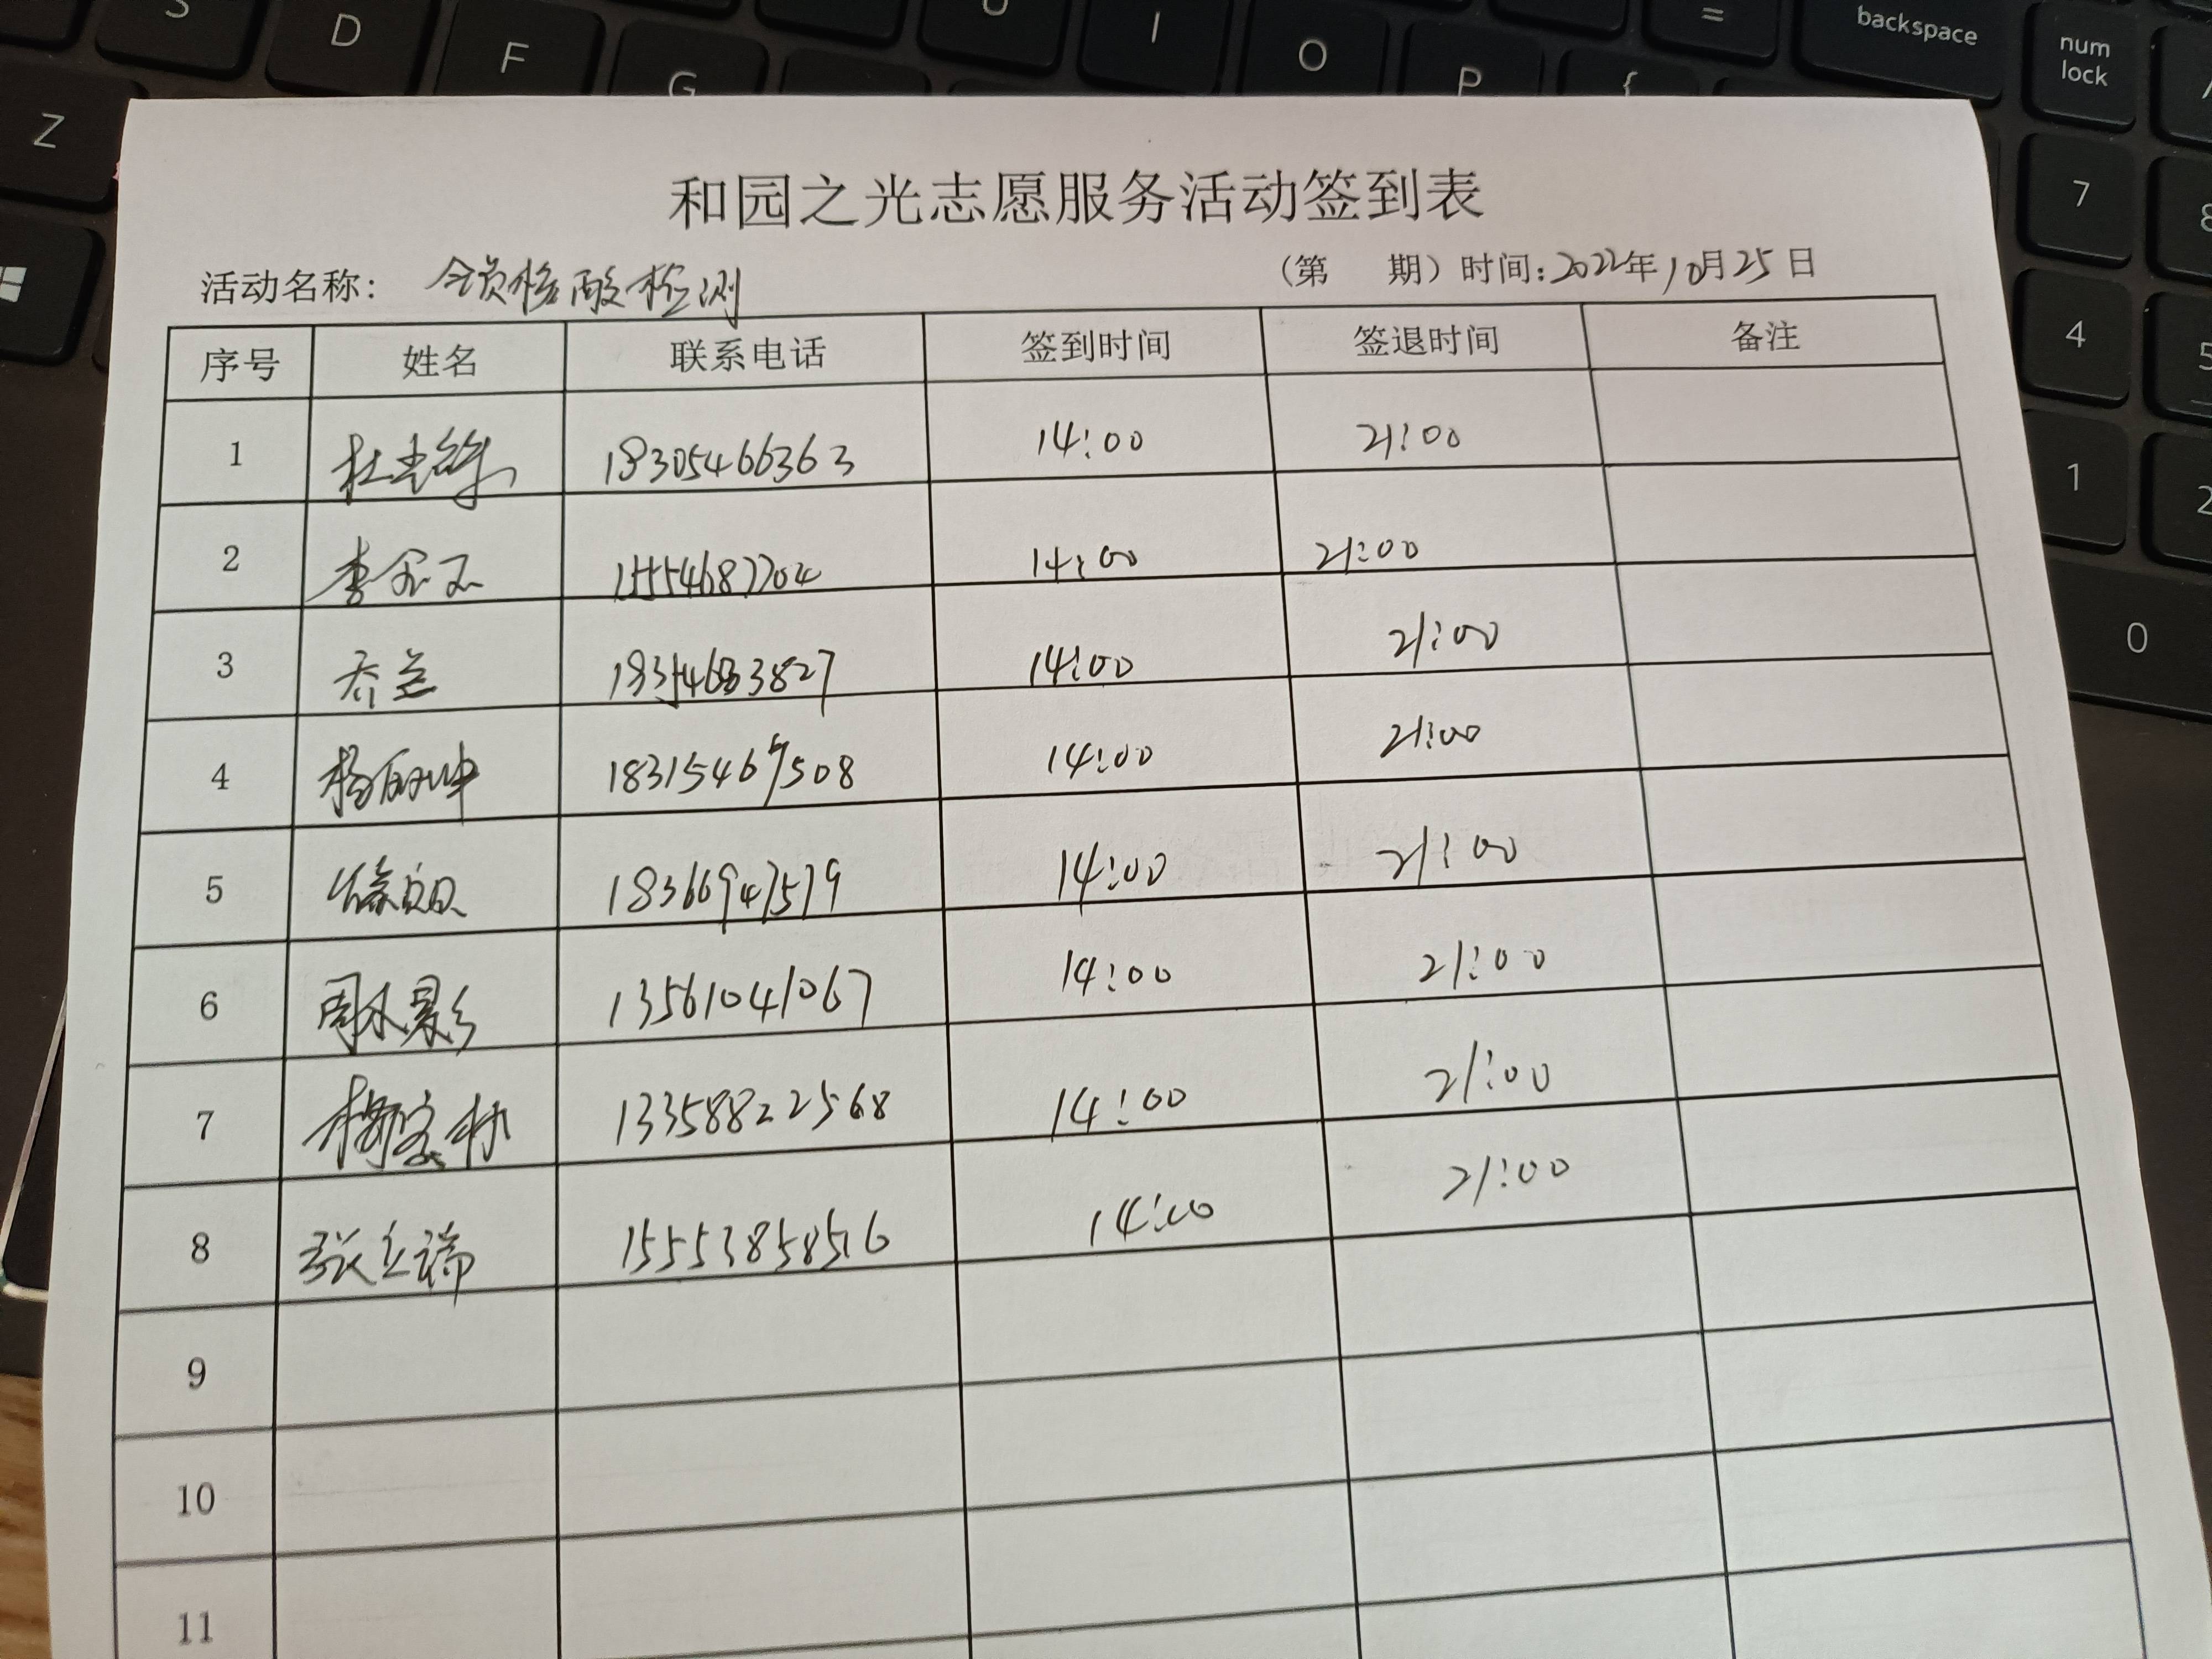 和园之光志愿服务活动签到表
活动名称: 全员核酸检测 (第 期) 时间:2022年10月25日
序号 姓名 联系电话 签到时间 签退时间 备注
1 杜 18305466363 14:00 21:00
2 李 15554687704 14:00 21:00
3 乔兰 14:00 21:00
4 杨丽坤 18315467508 14:00 21:00
5 徐 18366947579 14:00 21:00
6 周 影 13561041067 14:00 21:00
7 13358822568 14:00 21:00
8 张立瑞 15553858516 14:00 21:00
9
10
11
S D F G U I O P { = backspace
num lock
Z 7 8 4 5 1 2 0